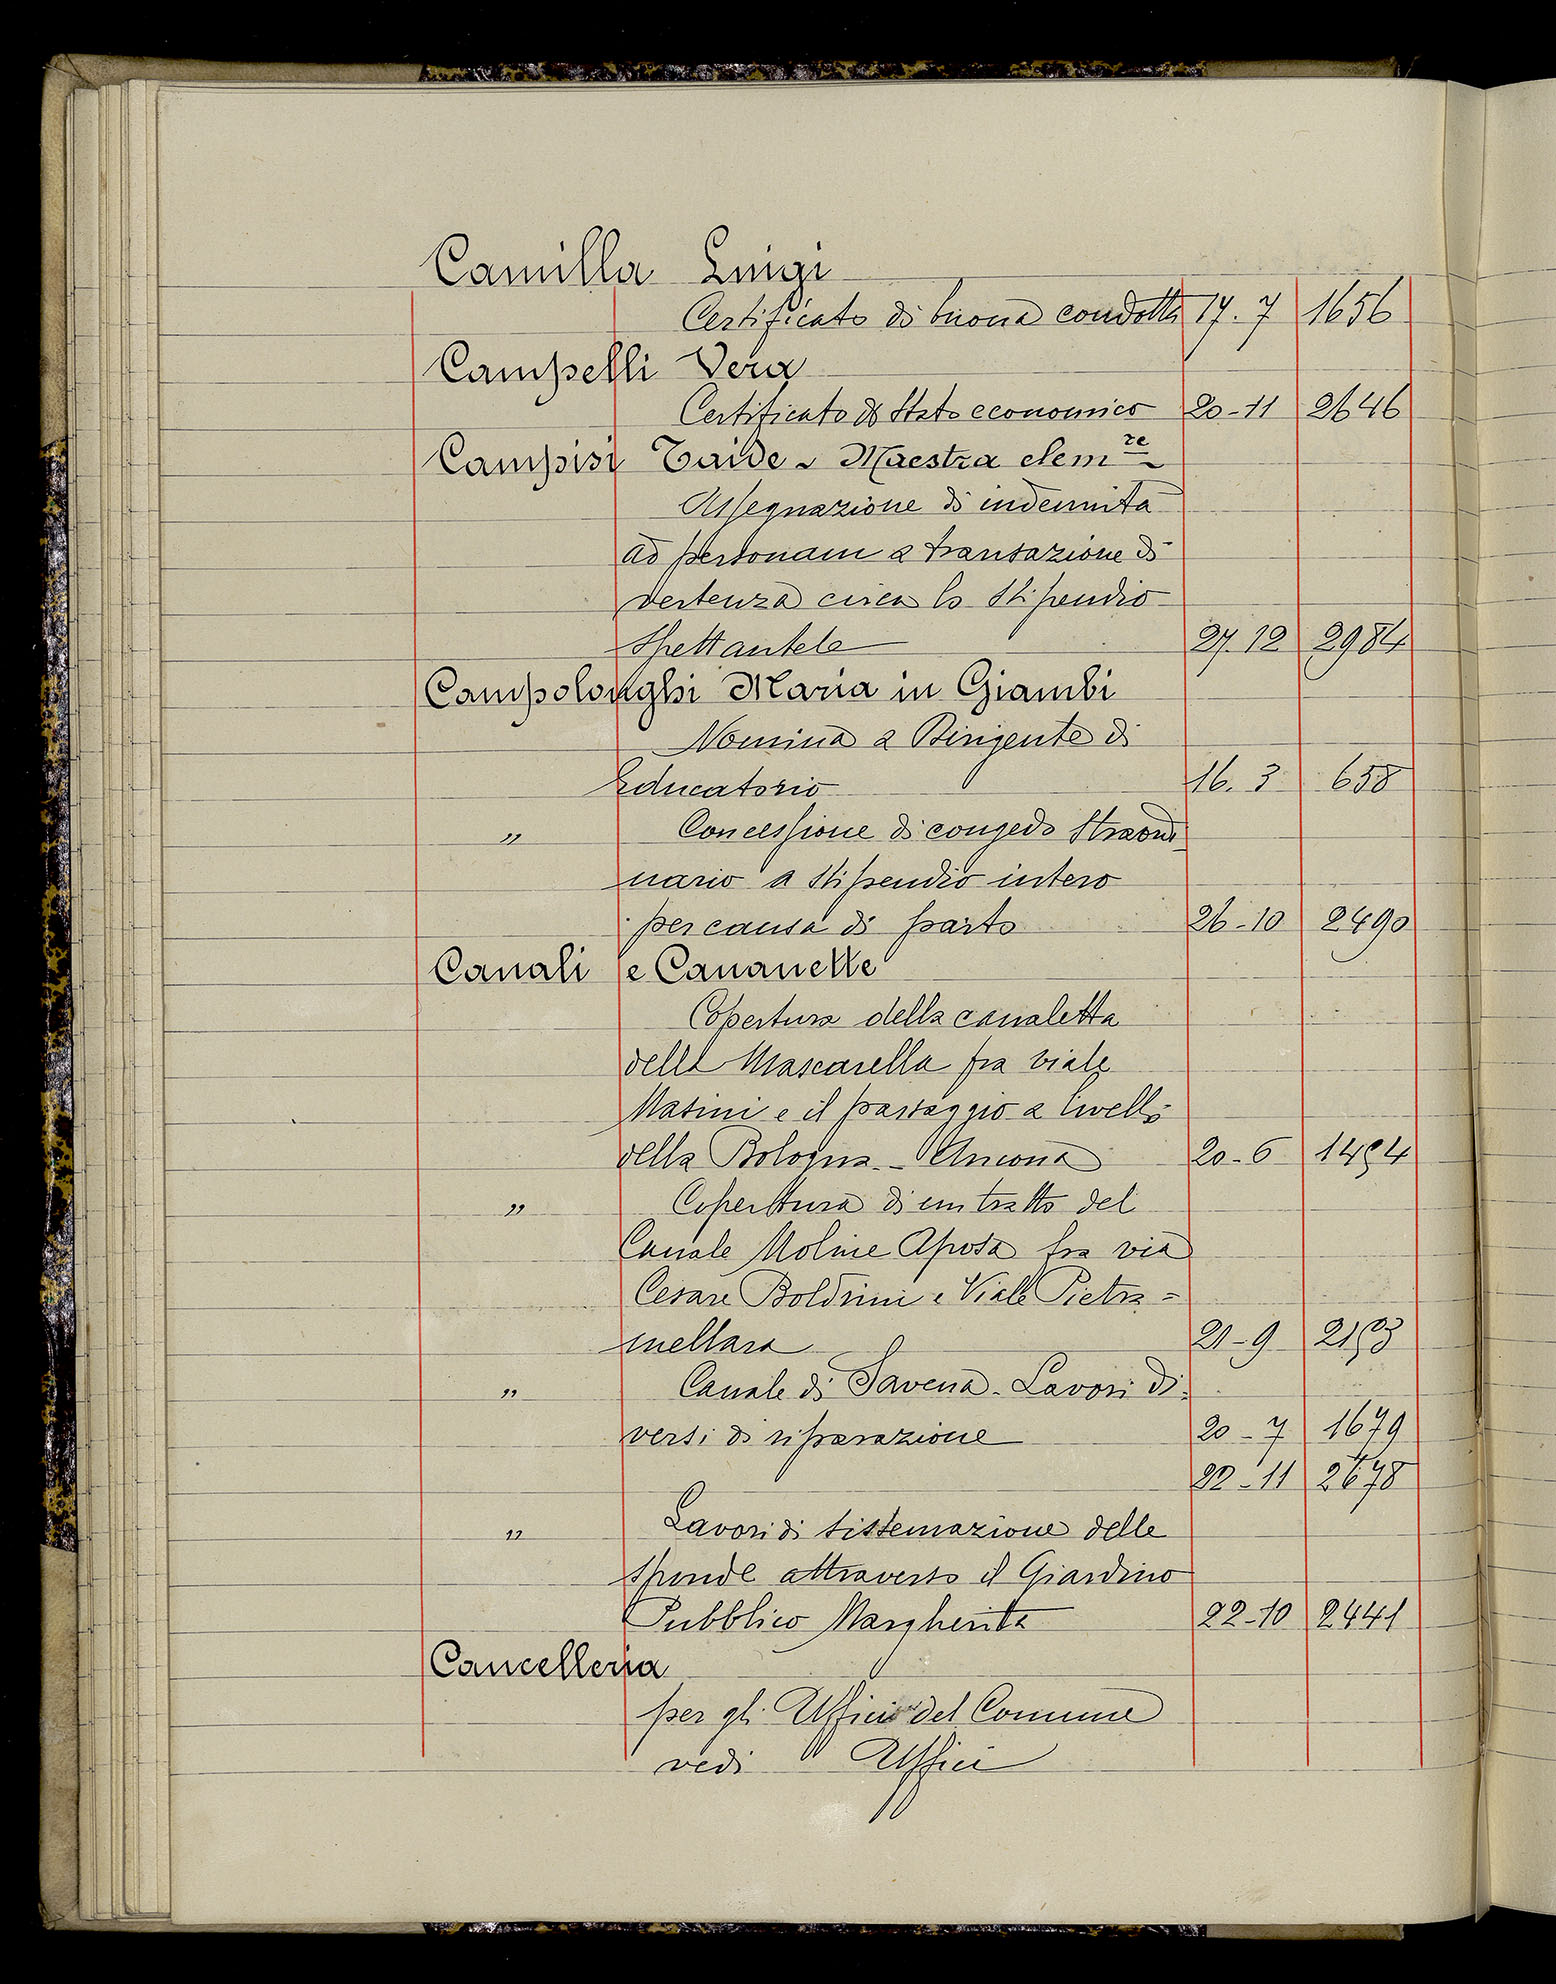 Camilla Luigi
Certificato di buona condotta 17. 7 1656
Campelli Vera
Certificato di Stato economico 20-11 2646
Campisi Taide - Maestra elem.re
Assegnazione di indennità
ad personam a transazione di
vertenza circa lo Stipendio
Spettantele 27. 12 2984
Campolonghi Maria in Giambi
Nomina a Dirigente di
Educatorio 16. 3 658
" Concessione di congedo Straordi
nario a Stipendio intero
per causa di parto 26-10 2490
Canali e Cananette
Copertura della canaletta
della Mascarella fra viale
Masini e il passaggio a livello
della Bologna - Ancona 20-6 1454
" Copertura di un tratto del
Canale Moline Aposa fra via
Cesare Boldrini e Viale Pietra=
mellara 21-9 2153
" Canale di Savena - Lavori di=
versi di riparazione 20-7 1679
22-11 2678
" Lavori di sistemazione delle
sponde attraverso il Giardino
Pubblico Margherita 22-10 2441
Cancelleria
per gli Uffici del Comune
vedi Uffici